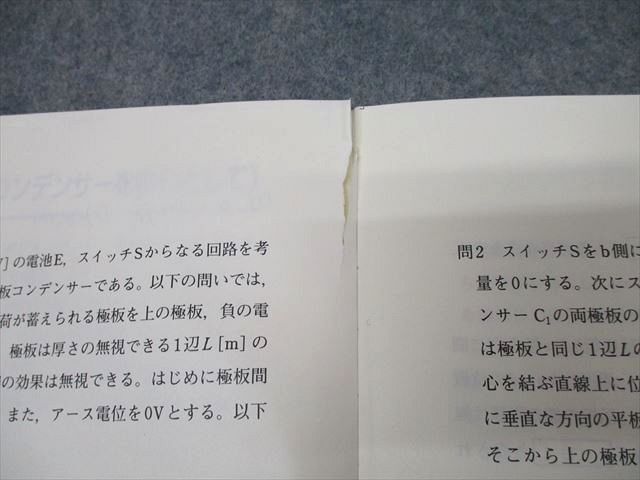 V]の電池E,スイッチSからなる回路を考
板コンデンサーである。以下の問いでは,
荷が蓄えられる極板を上の極板,負の電
極板は厚さの無視できる1辺L[m]の
の効果は無視できる。はじめに極板間
また,アース電位を0Vとする。以下
問2 スイッチSをb側に
量を0にする。次にス
ンサーC₁の両極板の
は極板と同じ1辺Lの
心を結ぶ直線上に位
に垂直な方向の平板
そこから上の極板